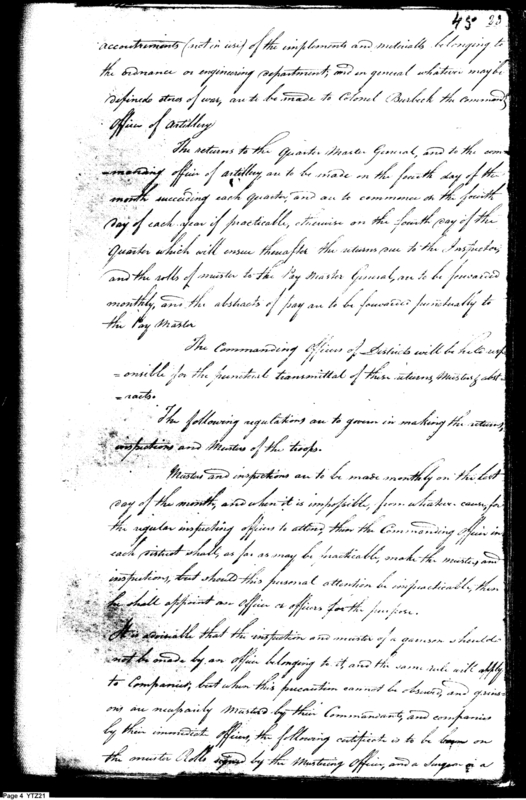 45 23
accoutrements (not in use) of the implements and materials belonging to
the ordnance or engineering department, and in general whatever may be
defined stores of war, are to be made to Colonel Burbeck the commandg
officer of Artillery
The returns to the Quarter Master General, and to the com-
-manding officer of artillery are to be made on the fourth day of the
month succeeding each quarter, and are to commence on the fourth
day of each year if practicable, otherwise on the fourth day of the
Quarter which will ensue thereafter the returns due to the Inspector,
and the rolls of muster to the Pay Master General, are to be forwarded
monthly, and the abstracts of pay are to be forwarded punctually to
the Pay Master
The Commanding Officers of Districts will be held resp
=onsible for the punctual transmittal of these returns, Musters & abst
-racts.
The following regulations are to govern in making the returns,
inspections and Musters of the troops.
Musters and inspections are to be made monthly on the last
day of the month, and when it is impossible, from whatever cause, for
the regular inspecting officer to attend, then the Commanding officer in
each district shall, as far as may be practicable, make the musters and
inspections, but should this personal attention be impracticable, then
he shall appoint an officer or officers for the purpose.
It is advisable that the inspection and muster of a garrison should
not be made by an officer belonging to it, and the same rule will apply
to Companies, but when this precaution cannot be observed, and garris-
ons are necessarily mustered by their Commandants, and companies
by their immediate officers, the following certificate is to be on
the muster Rolls signed by the Mustering Officer, and a Surgeon or a
Page 4 YTZ21